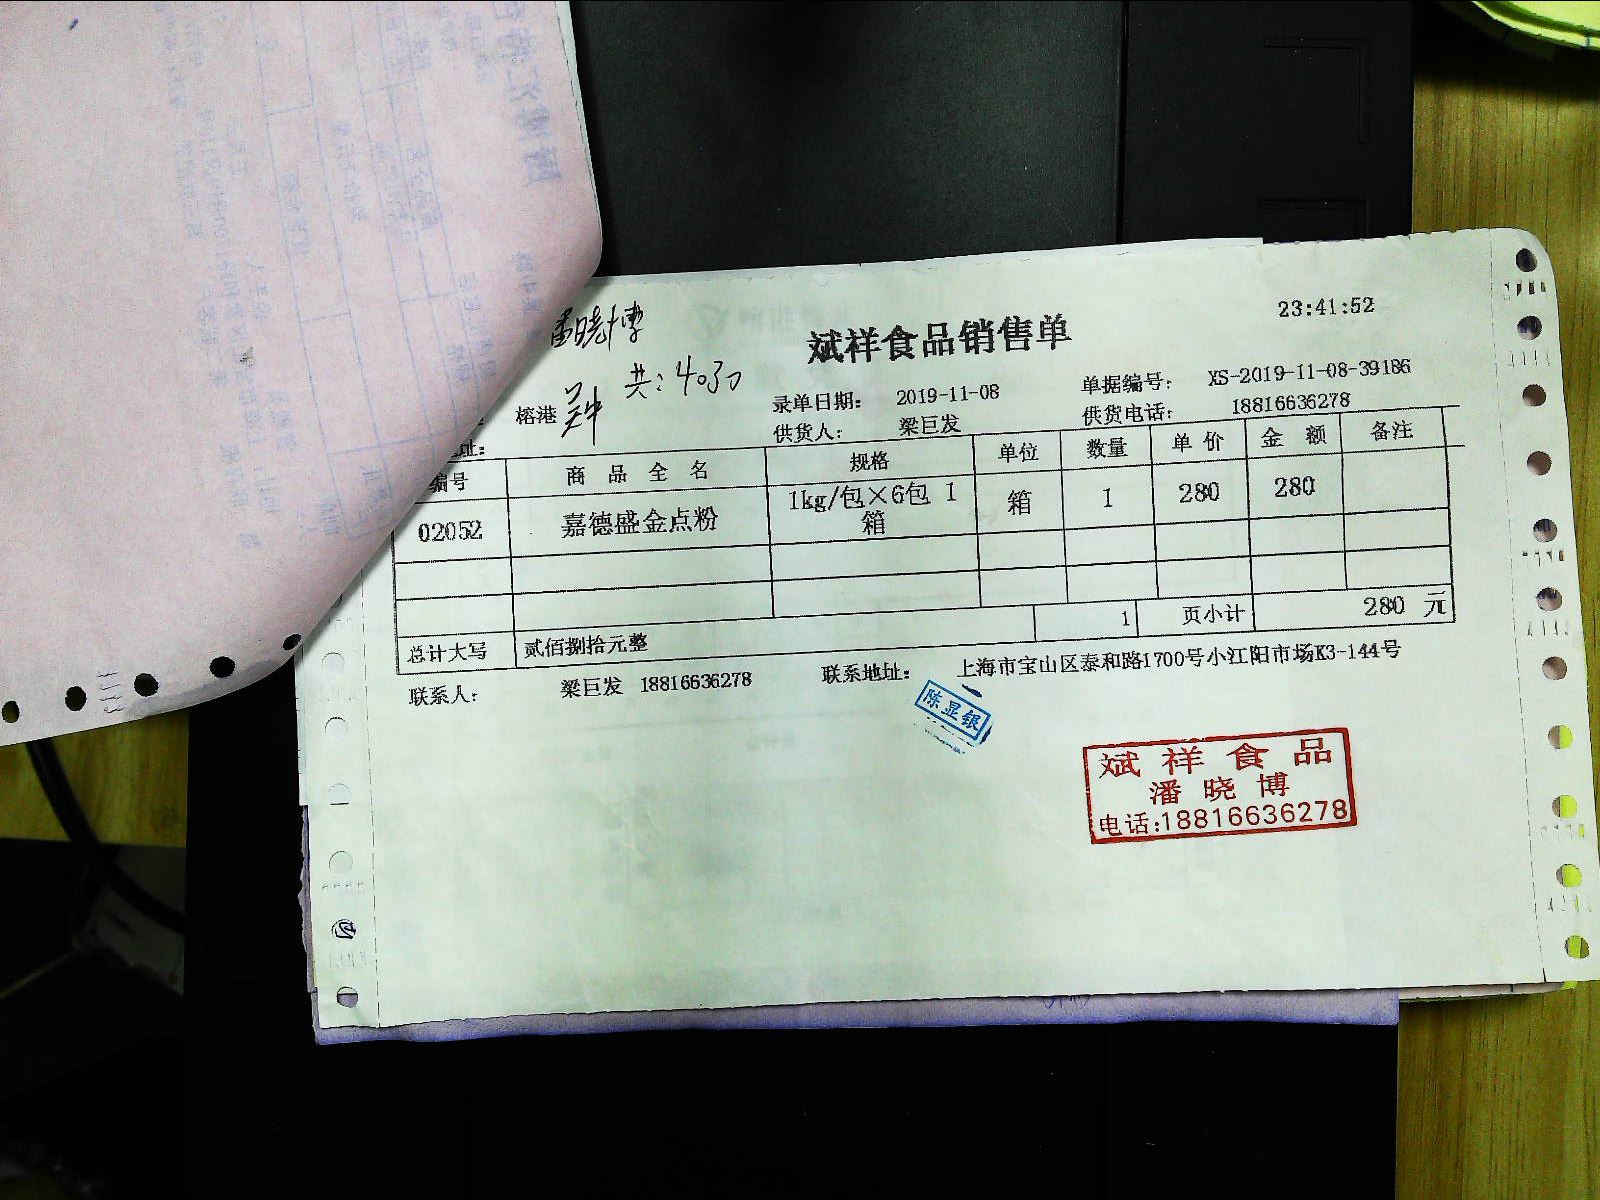 23:41:52
斌祥食品销售单
潘晓博
共:
榕港
录单日期: 2019-11-08
单据编号: XS-2019-11-08-39186
址:
供货人: 梁巨发
供货电话: 18816636278
编号 商品全名 规格 单位 数量 单价 金额 备注
02052 嘉德盛金点粉 1kg/包×6包 1箱 箱 1 280 280
1 页小计 280 元
总计大写 贰佰捌拾元整
联系人: 梁巨发 18816636278 联系地址: 上海市宝山区泰和路1700号小江阳市场K3-144号
陈显银
斌祥食品
潘晓博
电话:18816636278